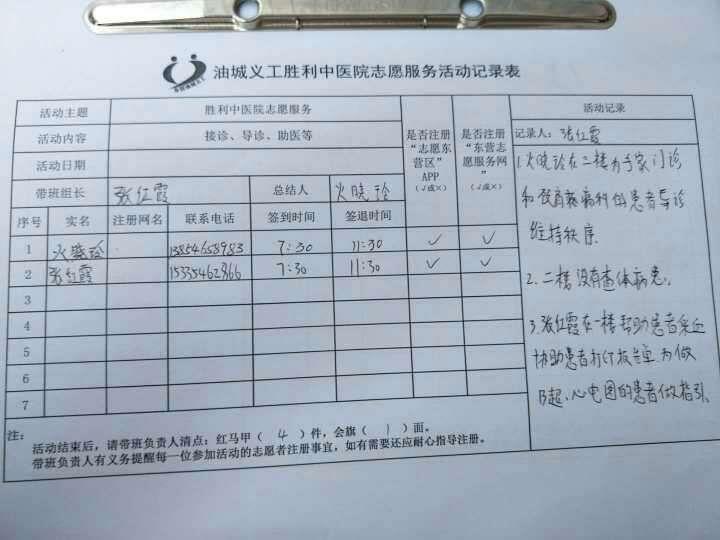 油城义工胜利中医院志愿服务活动记录表
活动主题 胜利中医院志愿服务
活动内容 接诊、导诊、助医等
活动日期
带班组长 张红霞 总结人 火晓玲
是否注册“志愿东营区”APP（√或×）
是否注册“东营志愿服务网”（√或×）
序号 实名 注册网名 联系电话 签到时间 签退时间
1 火晓玲 13854658983 7:30 11:30 √ √
2 张红霞 15335462866 7:30 11:30 √ √
3
4
5
6
7
活动记录
记录人：张红霞
1.火晓玲在二楼为专家门诊
和颈肩腰病科的患者导诊
维持秩序
2.二楼没有查体病患。
3.张红霞在一楼帮助患者
协助患者打印报告单为做
B超、心电图的患者做指引.
注：
活动结束后，请带班负责人清点：红马甲（ 4 ）件，会旗（ 1 ）面。
带班负责人有义务提醒每一位参加活动的志愿者注册事宜，如有需要还应耐心指导注册。